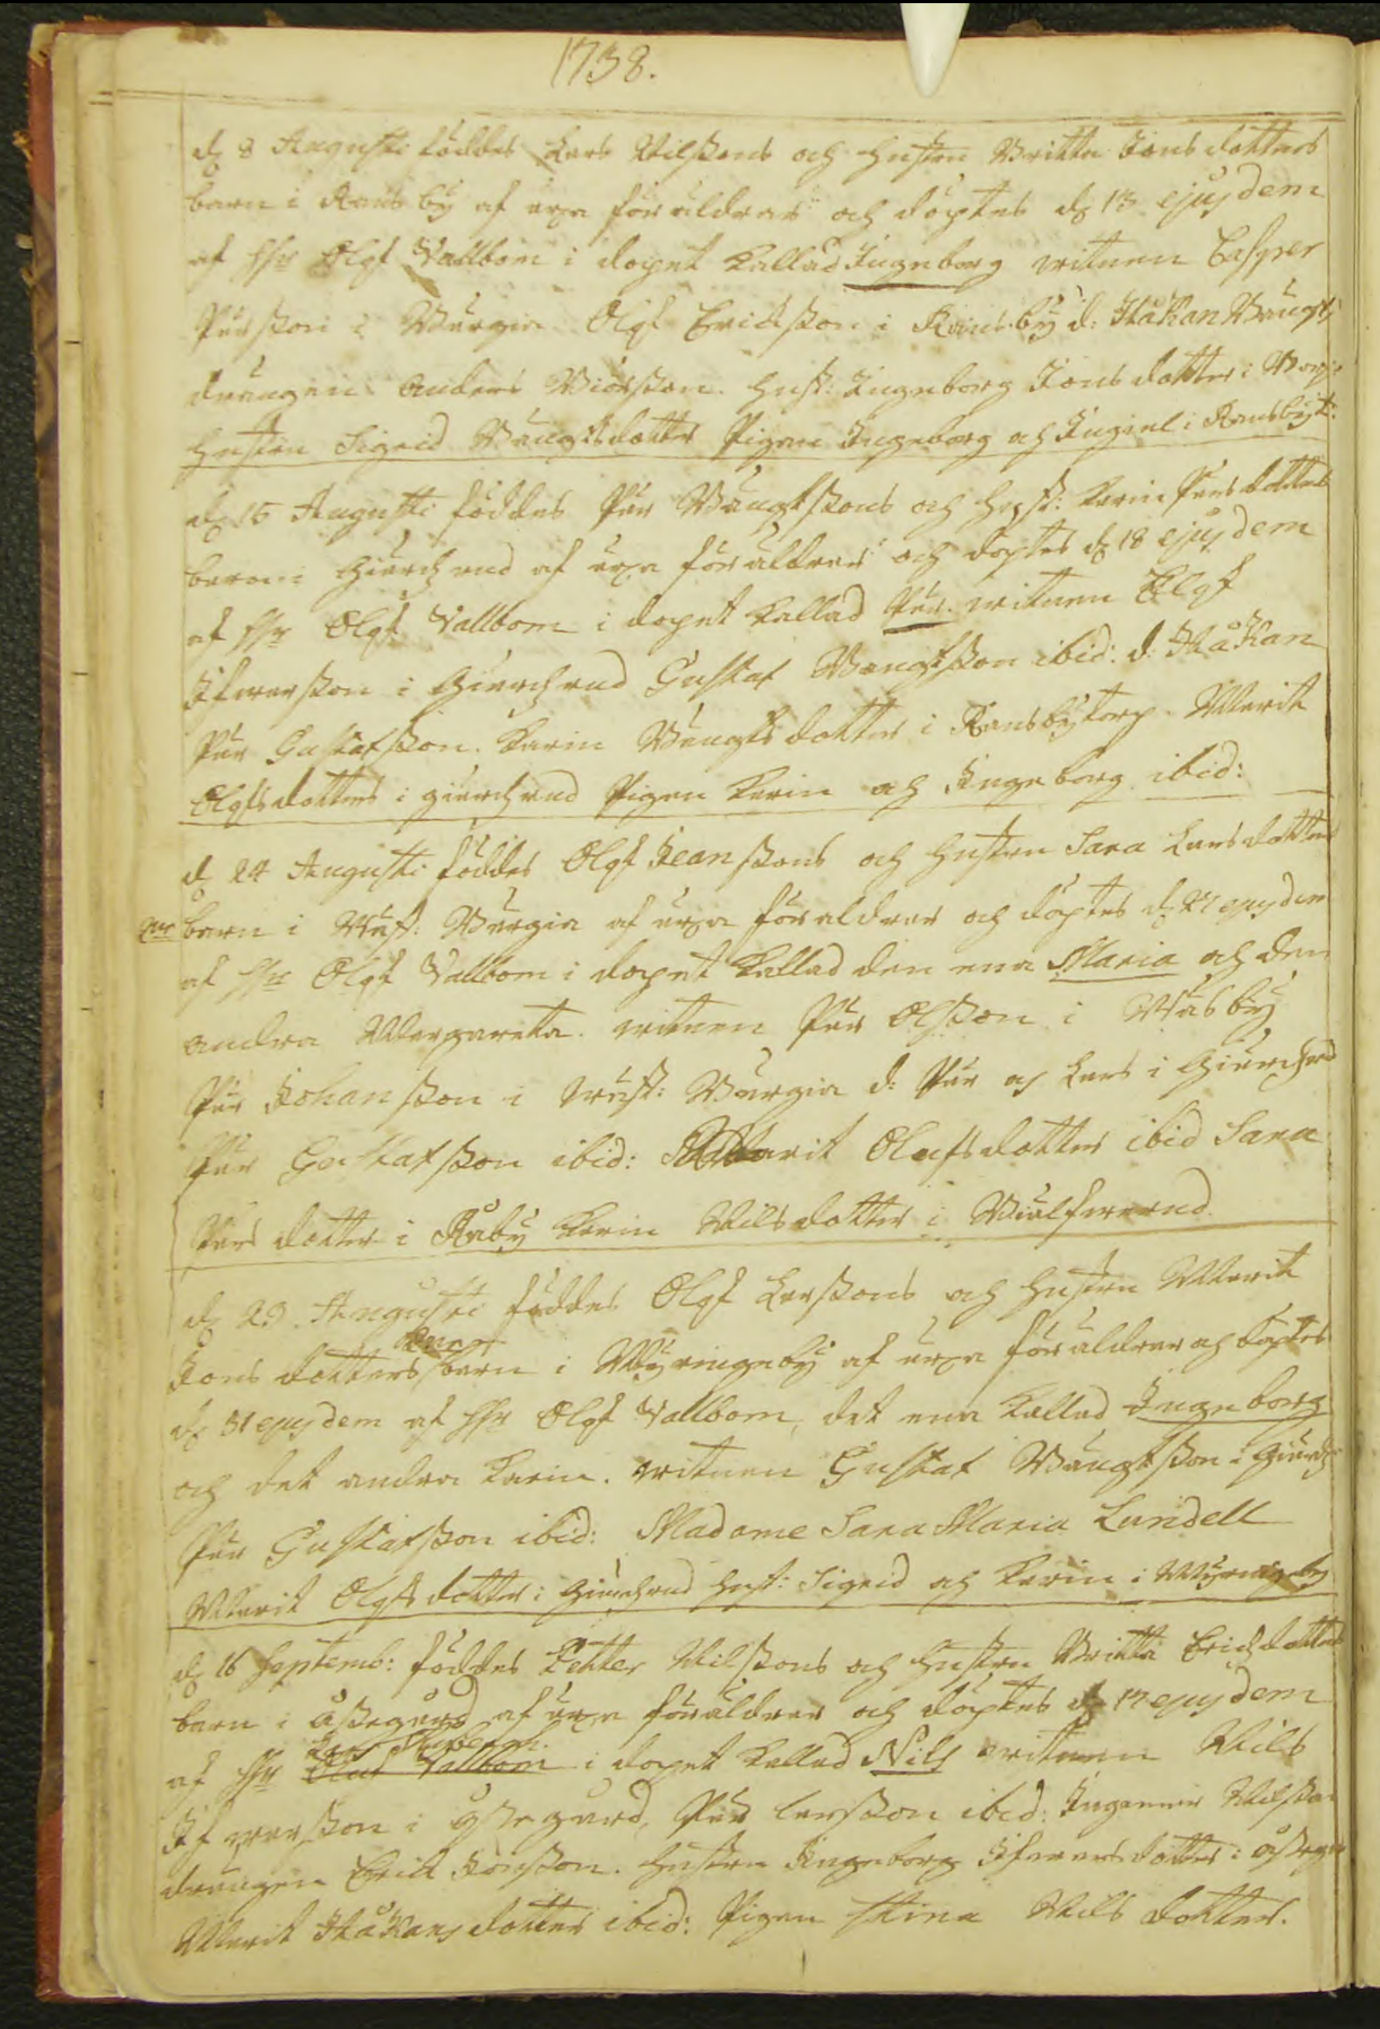 1738.
d 8 Augusti föddes Lars Nilßons och hustru Britta Jonsdotters
barn i Ransby af äqta föräldrar och döptes d 13 ejusdem
af Hr Olof Vallbom i dopet kallad Ingeborg witnen Casper
Pärßon i Bärgia Olof Erickßon i Ransby d: Håkan Bängts
drängen Anders Biörßon. hust: Ingeborg Jonsdotter i
hustru Sigrid Bängtsdotter Pigan Ingeborg och Ingiel i Ransbyt:
d 15 Augusti föddes Pär Bängtßons och hust: Karin Pärsdotters
barn i Giärdzrud af äqta föräldrar och döptes d 18 ejusdem
af Hr Olof Vallbom i dopet kallad Pär. witnen Olof
Ifwarßon i Giärdzrud Gustaf Bängtßon ibid: d: Håkan
Pär Gustafßon. Karin Bängtsdotter i Ransbytorp. Marit
Olofsdotter i giärdzrud Pigan Karin och Ingeborg ibid:
d 24 Augusti föddes Olof Jeanßons och hustru Sara Larsdotters
barn i Wäst: Bärgia af äqta föräldrar och döptes d 27 ejusdem
af Hr Olof Vallbom i dopet kallad den ena Maria och den
andra Margareta. witnen Pär Olßon i Wåsby
Pär Johanßon i Wäst: Bärgia d: Pär och Lars i Giärdzrud
Pär Gustafßon ibid: Marit Olofsdotter ibid Sara
Pärsdotter i Råby Karin Nilsdotter i
d 29. Augusti föddes Olof Larßons och hustru Marit
Jonsdotters barn i Myringeby af äqta föräldrar och döptes
d 31 ejusdem af Hr Olof Vallbom, det ena kallad Ingeborg
och det andra Karin. witnen Gustaf Bängtßon i Giärdz
Pär Gustafßon ibid: Madame Sara Maria Lundell
Marit Olofsdotter i Giärdzrud hust: Sigrid och Karin i Myringeby
d 16 Septemb: föddes Petter Nilßons och hustru Britta Ericksdotters
barn i åßegård af äqta föräldrar och döptes d 17 ejusdem
af Hr Olof Vallbom i dopet kallad Nils witnen Nils
Ifwarßon i åßegård, Pär Larßon ibid: Ingemar Nilßon
drängen Erik Jonßon. hustru Ingeborg Ifwarsdotter i åßegår
Marit Håkansdotter ibid: Pigan Stina Nilsdotter.